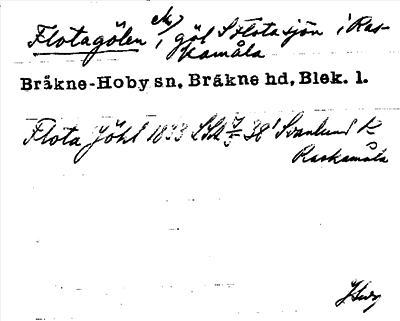 Flotagölen, göl S Flotasjön i Ras-
kamåla
Bräkne-Hoby sn, Bräkne hd, Blek. l.
Flota Jöhl 1833 Svanlund K
Raskamåla